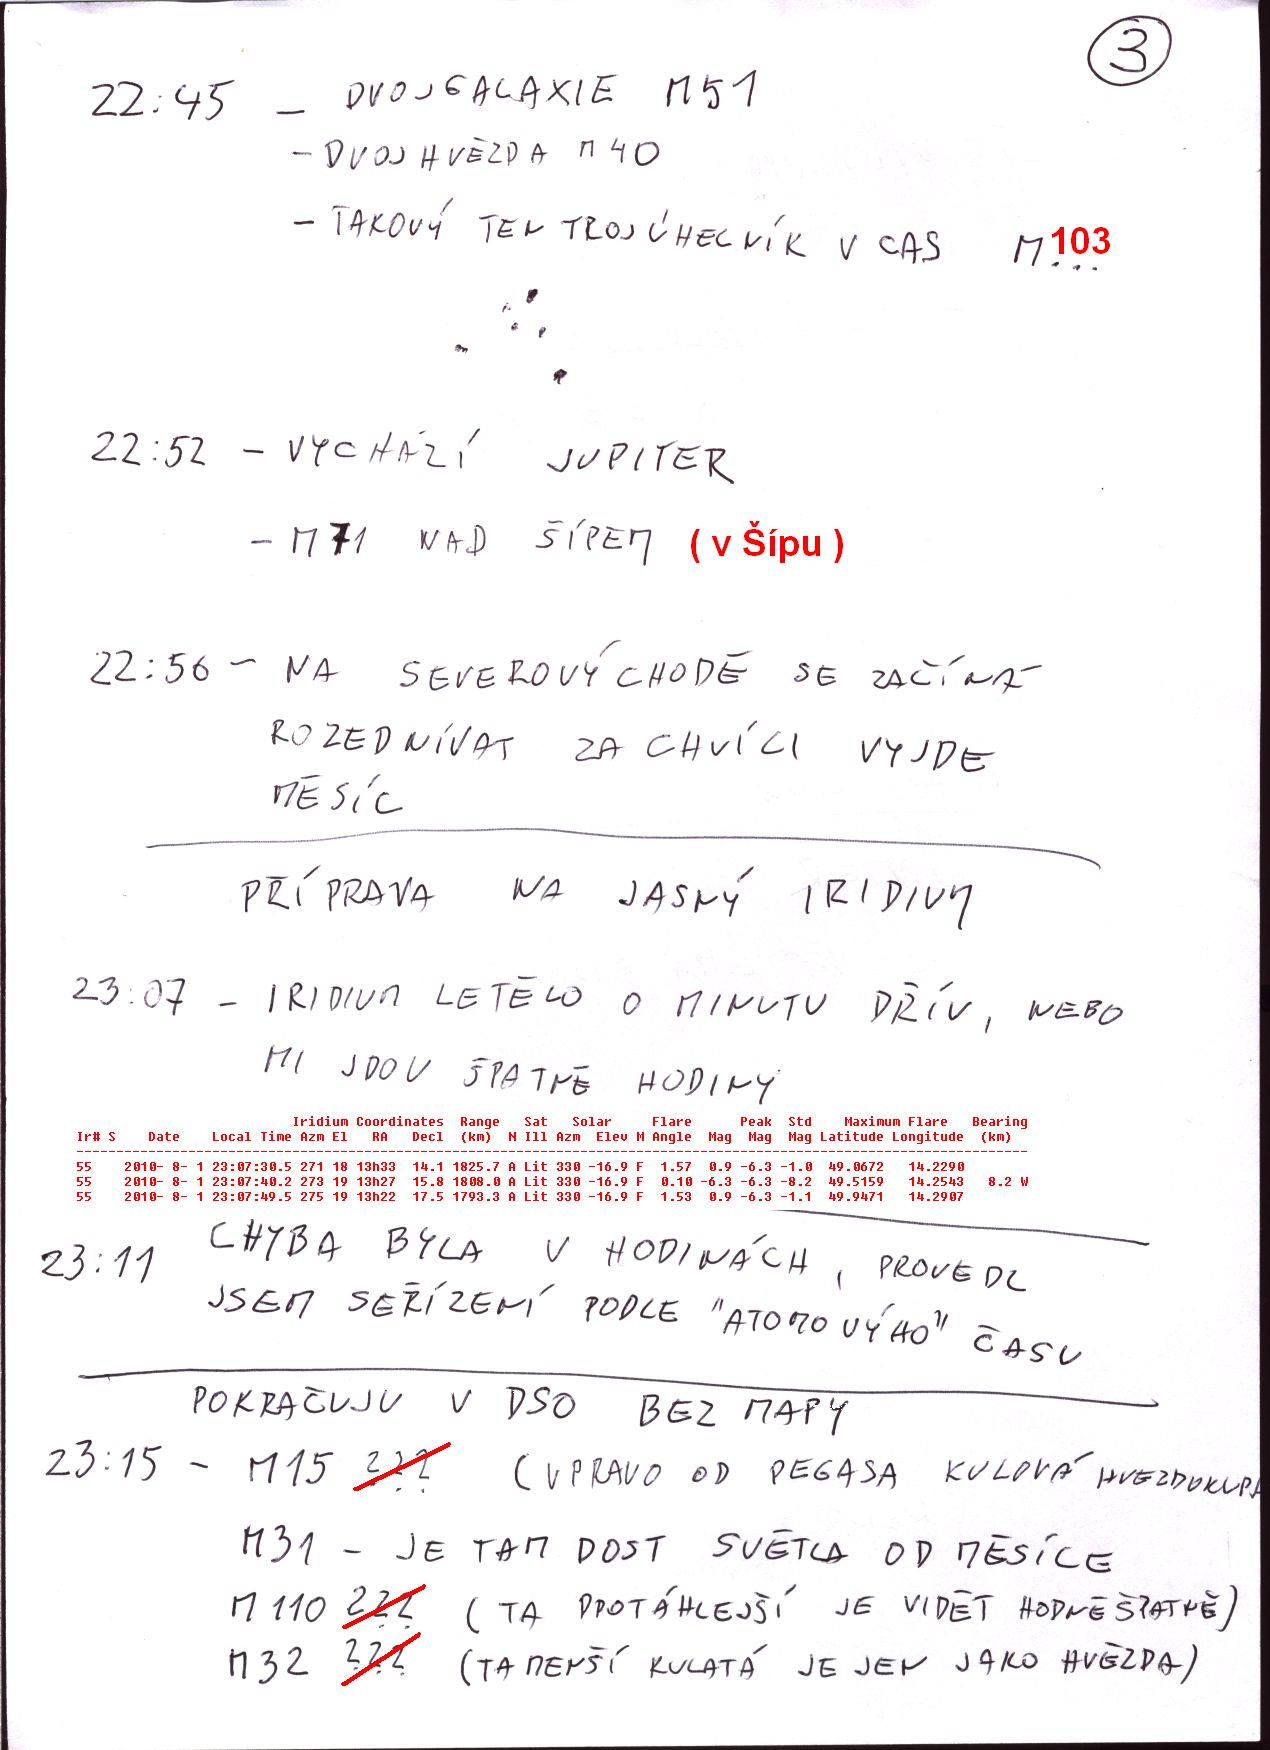 3
22:45 – DVOJGALAXIE M51
– DVOJHVĚZDA M40
– TAKOVÝ TEN TROJÚHELNÍK V CAS M103
...
22:52 – VYCHÁZÍ JUPITER
– M71 NAD ŠÍPEM ( v Šípu )
22:56 – NA SEVEROVÝCHODĚ SE ZAČÍNÁ
ROZEDNÍVAT ZA CHVÍLI VYJDE
MĚSÍC
PŘÍPRAVA NA JASNÝ IRIDIUM
23:07 – IRIDIUM LETĚLO O MINUTU DŘÍV, NEBO
MI JDOU ŠPATNĚ HODINY
Iridium Coordinates Range Sat Solar Flare Peak Std Maximum Flare Bearing
Ir# S Date Local Time Azm El RA Decl (km) N Ill Azm Elev M Angle Mag Mag Mag Latitude Longitude (km)
55 2010- 8- 1 23:07:30.5 271 18 13h33 14.1 1825.7 A Lit 330 -16.9 F 1.57 0.9 -6.3 -1.0 49.0672 14.2290
55 2010- 8- 1 23:07:40.2 273 19 13h27 15.8 1808.0 A Lit 330 -16.9 F 0.10 -6.3 -6.3 -8.2 49.5159 14.2543 8.2 W
55 2010- 8- 1 23:07:49.5 275 19 13h22 17.5 1793.3 A Lit 330 -16.9 F 1.53 0.9 -6.3 -1.1 49.9471 14.2907
23:11 CHYBA BYLA V HODINÁCH, PROVEDL
JSEM SEŘÍZENÍ PODLE "ATOMOVÝHO" ČASU
POKRAČUJU V DSO BEZ MAPY
23:15 – M15 ??? (VPRAVO OD PEGASA KULOVÁ HVEZDOKUPA
M31 – JE TAM DOST SVĚTLA OD MĚSÍCE
M110 ??? (TA PROTÁHLEJŠÍ JE VIDĚT HODNĚ ŠPATNĚ)
M32 ??? (TA MENŠÍ KULATÁ JE JEN JAKO HVĚZDA)